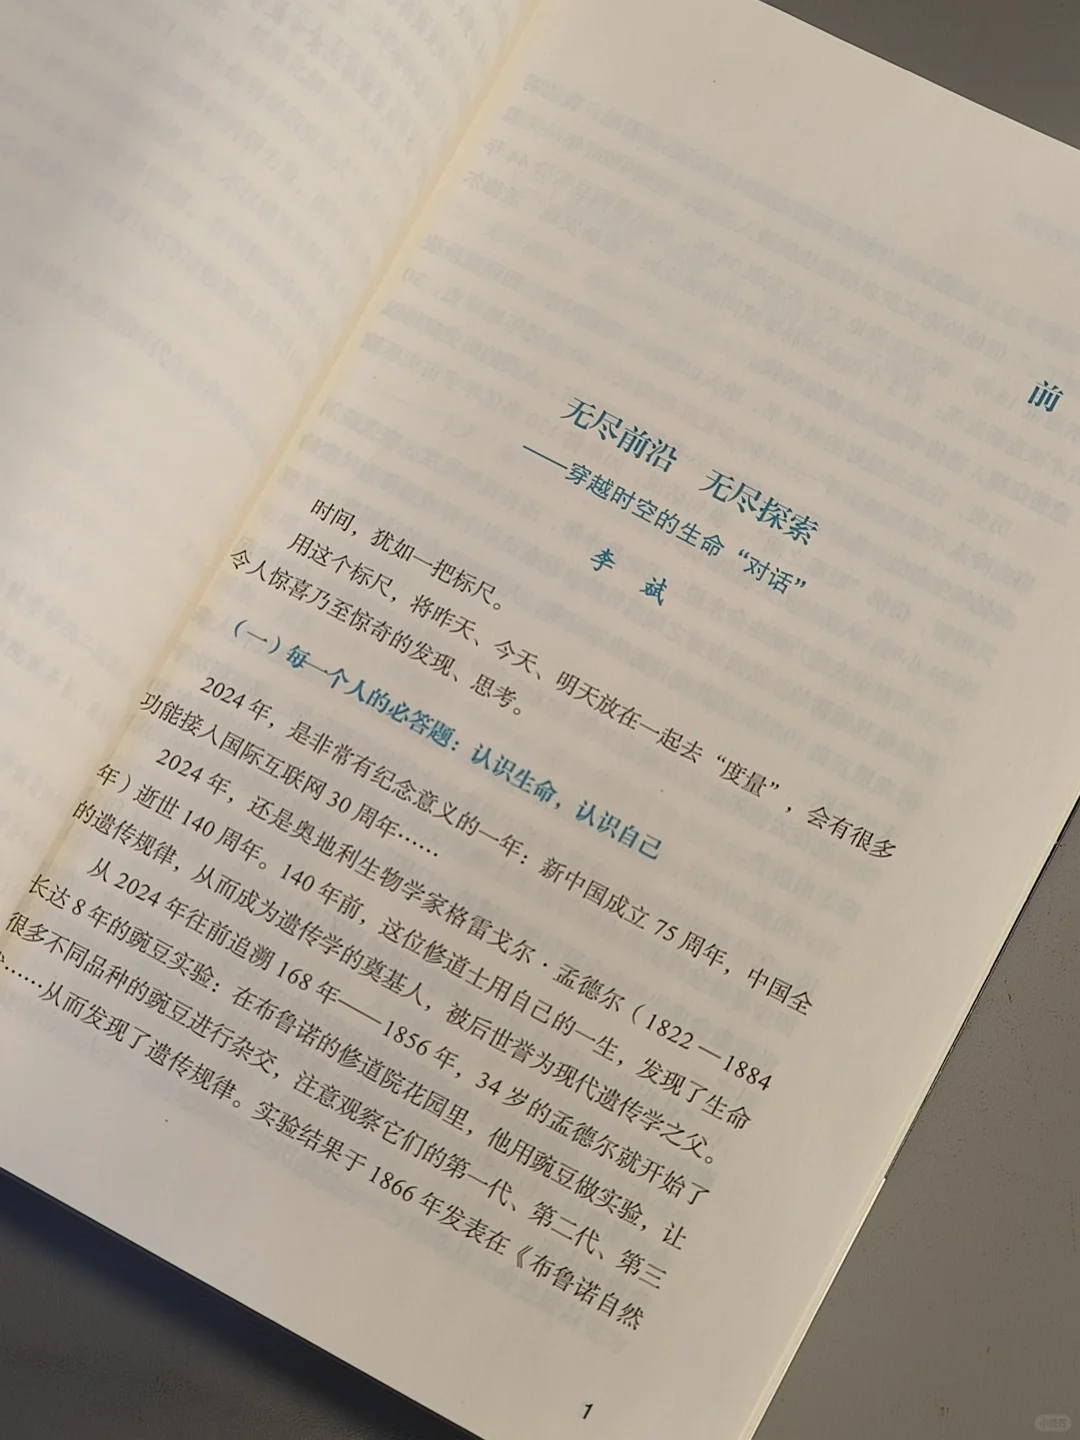 前
无尽前沿　无尽探索
——穿越时空的生命“对话”
李　斌
时间，犹如一把标尺。
用这个标尺，将昨天、今天、明天放在一起去“度量”，会有很多
令人惊喜乃至惊奇的发现、思考。
（一）每一个人的必答题：认识生命，认识自己
2024 年，是非常有纪念意义的一年：新中国成立 75 周年，中国全
功能接入国际互联网 30 周年……
2024 年，还是奥地利生物学家格雷戈尔·孟德尔（1822—1884
年）逝世 140 周年。140 年前，这位修道士用自己的一生，发现了生命
的遗传规律，从而成为遗传学的奠基人，被后世誉为现代遗传学之父。
从 2024 年往前追溯 168 年——1856 年，34 岁的孟德尔就开始了
长达 8 年的豌豆实验：在布鲁诺的修道院花园里，他用豌豆做实验，让
很多不同品种的豌豆进行杂交，注意观察它们的第一代、第二代、第三
……从而发现了遗传规律。实验结果于 1866 年发表在《布鲁诺自然
1
小红书